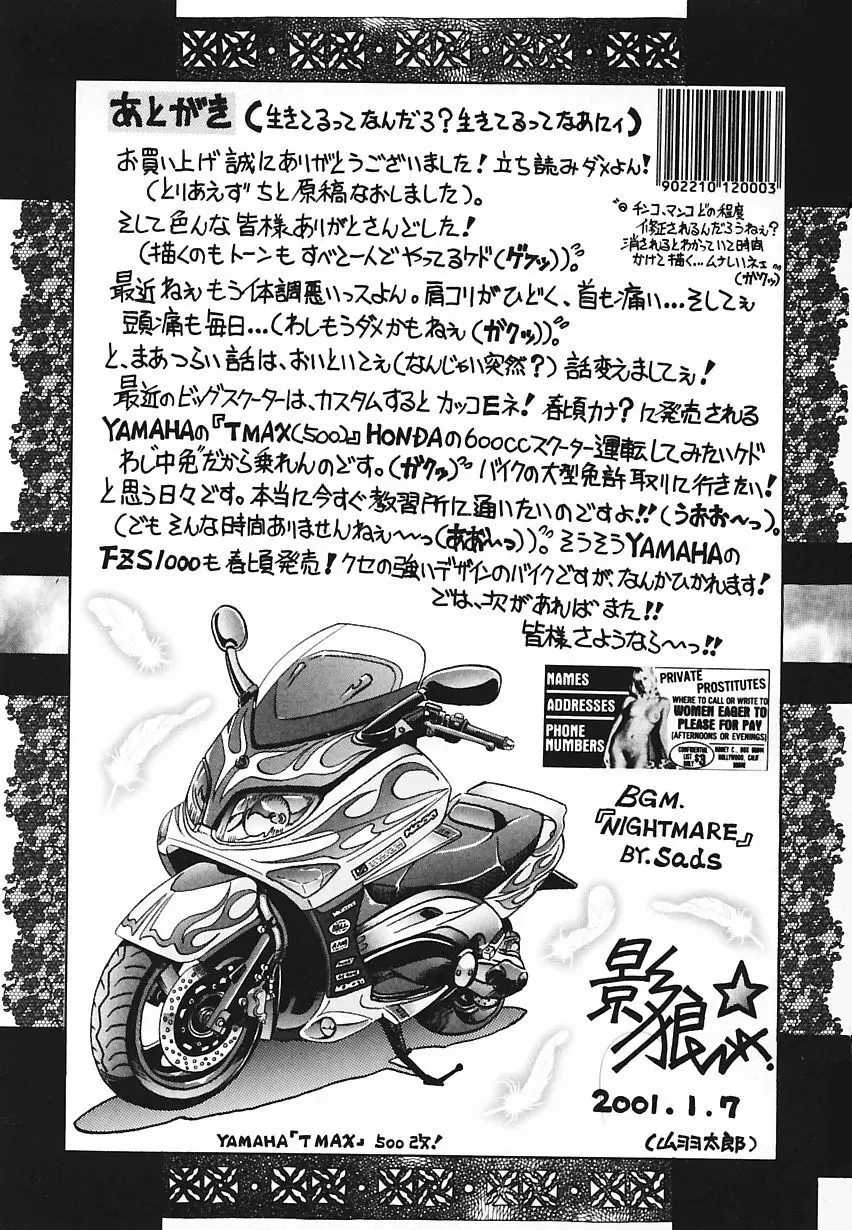 あとがき (生きてるってなんだろ?生きてるってなあにィ)
お買い上げ誠にありがとうございました!立ち読みダメよん!
(とりあえずちと原稿なおしました)。
そして色んな皆様ありがとさんどした!
(描くのもトーンもすべと一人でやってるケド(ゲフッ))。
902210 120003
チンコ、マンコどの程度
修正されるんだろうねぇ?
消されるとわかっていて時間
かけて描く…ムナしいネェ
(ガクッ)
最近ねぇもう体調悪いっスよん。肩コリがひどく、首も痛い…そしてぇ
頭痛も毎日…(わしもうダメかもねぇ(ガクッ))。
と、まあつらい話は、おいといてぇ(なんじゃい突然?)話変えましてぇ!
最近のビッグスクーターは、カスタムするとカッコEネ!春頃カナ?に発売される
YAMAHAの『TMAX(500)』HONDAの600CCスクーター運転してみたいケド
わし"中免"だから乗れんのです。(ガクッ)バイクの大型免許取りに行きたい!
と思う日々です。本当に今すぐ教習所に通いたいのですよ!!(うおお〜っ)。
(でもそんな時間ありませんねぇ〜〜っ(あお〜っ))。そうそうYAMAHAの
FZS1000も春頃発売!クセの強いデザインのバイクですが、なんかひかれます!
では、次があればまた!!
皆様さようなら〜っ!!
NAMES
ADDRESSES
PHONE
NUMBERS
PRIVATE
PROSTITUTES
WHERE TO CALL OR WRITE TO
WOMEN EAGER TO
PLEASE FOR PAY
(AFTERNOONS OR EVENINGS)
CONFIDENTIAL
LIST
ONLY $3
HONEY C., BOX
HOLLYWOOD, CALIF
BGM.
『NIGHTMARE』
BY. Sads
影狼
2001.1.7
YAMAHA『TMAX』500改!